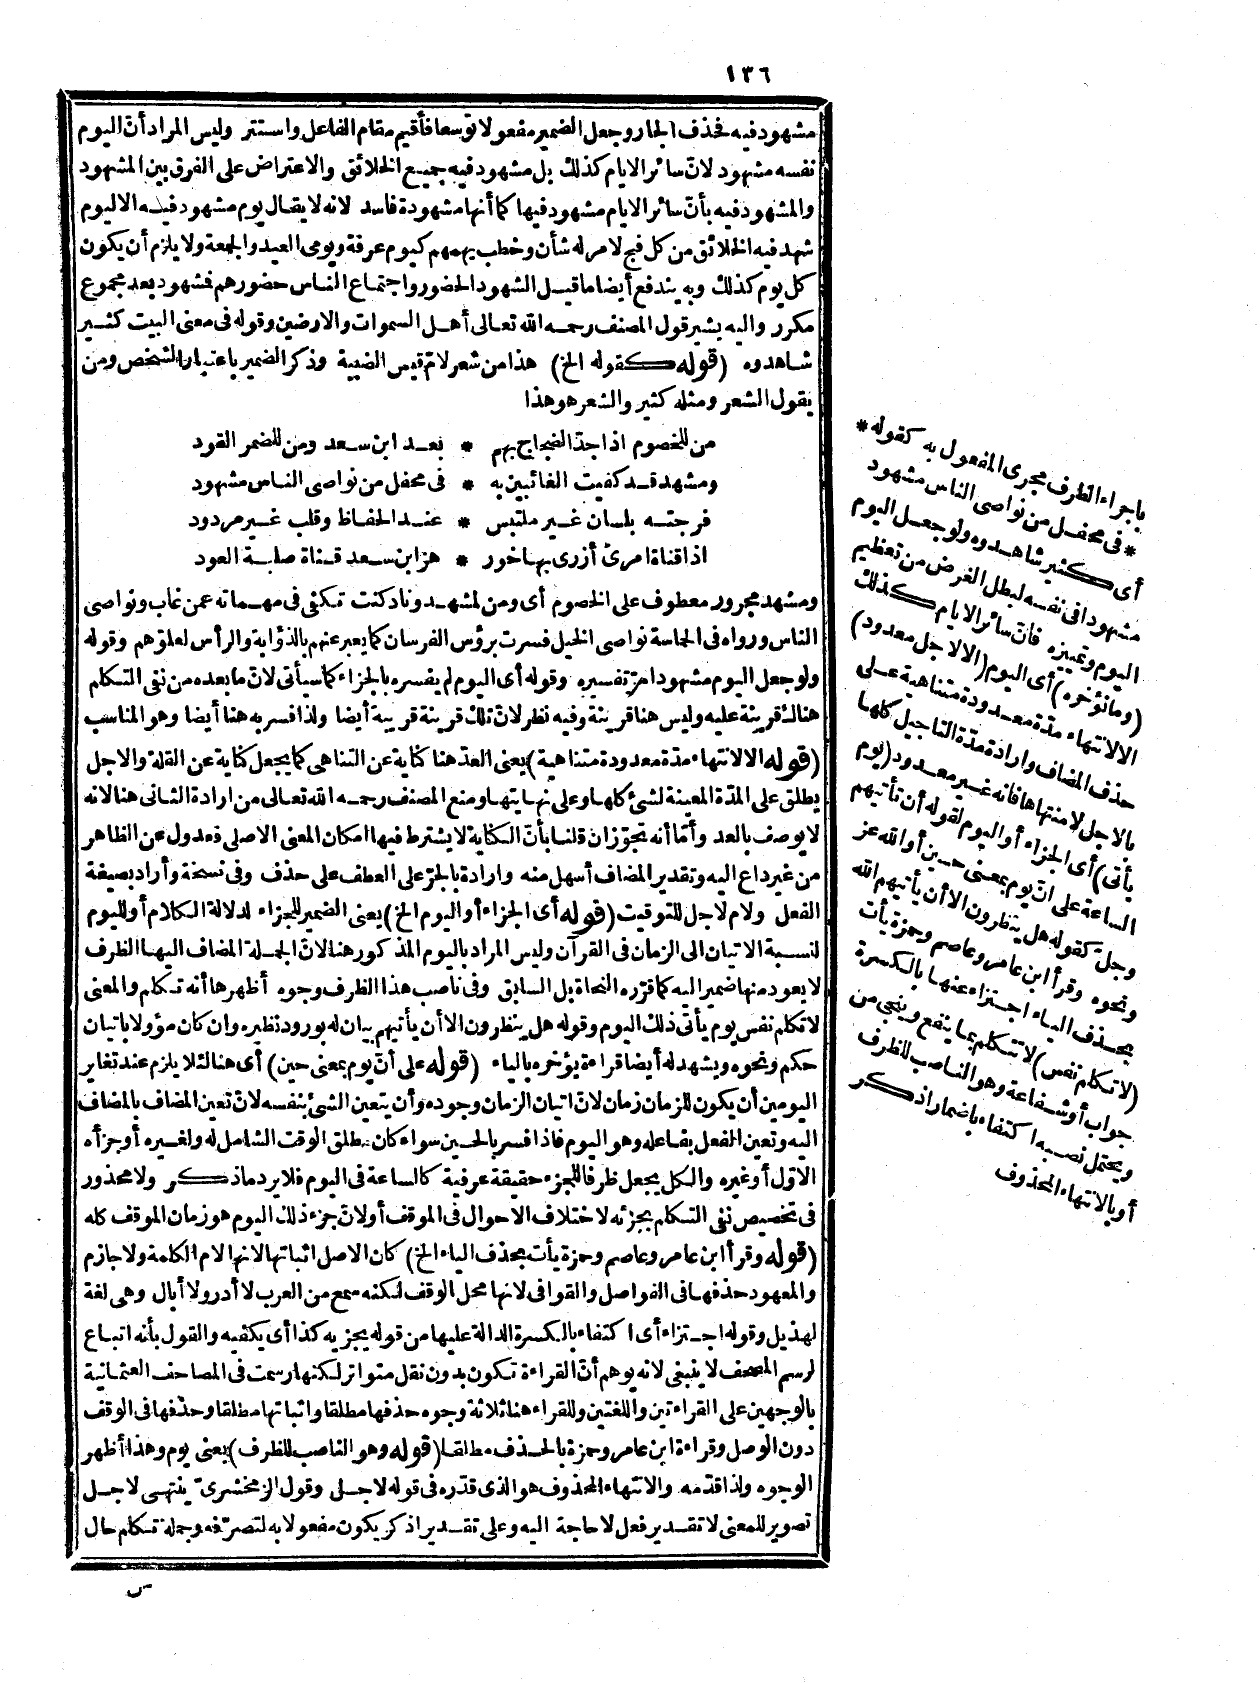 ١٣٦
مشهود فيه فحذف الجار وجعل الضمير مفعولا توسعا فأقيم مقام الفاعل واستتر وليس المراد أن اليوم
نفسه مشهود لان سائر الايام كذلك بل مشهود فيه جميع الخلائق والاعتراض على الفرق بين المشهود
والمشهود فيه بأن سائر الايام مشهود فيها كما أنها مشهودة فاسد لانه لا يقال يوم مشهود فيه الا ليوم
شهد فيه الخلائق من كل فج لامر له شأن وخطب يهمهم كيوم عرفة ويومي العيد والجمعة ولا يلزم أن يكون
كل يوم كذلك وبه يندفع أيضا ما قيل الشهود الحضور واجتماع الناس حضورهم فشهود بعد مجموع
مكرر واليه يشير قول المصنف رحمه الله تعالى أهل السموات والارضين وقوله في معنى البيت كثير
شاهدوه (قوله كقوله الخ) هذا من شعر لام قيس الضبية وذكر الضمير باعتبار الشخص ومن
يقول الشعر ومثله كثير والشعر هو هذا
من للخصوم اذا جدّ الضجاج بهم * بعد ابن سعد ومن للضمر القود
ومشهد قد كفيت الغائبين به * في محفل من نواصي الناس مشهود
فرجته بلسان غير ملتبس * عند الحفاظ وقلب غير مردود
اذا قناة امرئ أزرى بها خور * هز ابن سعد قناة صلبة العود
ومشهد مجرور معطوف على الخصوم أى ومن لمشهد وناد كنت تكفى فى مهماته عمن غاب ونواصى
الناس ورواه في الحماسة نواصى الخيل فسرت برؤس الفرسان كما يعبر عنهم بالذؤابة والرأس لعلوهم وقوله
ولو جعل اليوم مشهودا مرّ تفسيره وقوله أى اليوم لم يفسره بالجزاء كما سيأتى لان ما بعده من نفى التكلم
هنالك قرينة عليه وليس هنا قرينة وفيه نظر لان تلك قرينة قريبة أيضا ولذا فسر به هنا أيضا وهو المناسب
(قوله الا لانتهاء مدة معدودة متناهية) يعنى العدّ هنا كناية عن التناهى كما يجعل كناية عن القلة والاجل
يطلق على المدّة المعينة لشئ كلها وعلى نهايتها ومنع المصنف رحمه الله تعالى من ارادة الثانى هنا لانه
لا يوصف بالعد وأمّا أنه تجوّز ان قلنا بأن الكناية لا يشترط فيها امكان المعنى الاصلى فعدول عن الظاهر
من غير داع اليه وتقدير المضاف أسهل منه وارادة بالجرّ على العطف على حذف وفى نسخة وأراد بصيغة
الفعل ولام لاجل للتوقيت (قوله أى الجزاء أو اليوم الخ) يعنى الضمير للجزاء لدلالة الكلام أو لليوم
لنسبة الاتيان الى الزمان فى القرآن وليس المراد باليوم المذكور هنا لان الجملة المضاف اليها الظرف
لا يعود منها ضمير اليه كما قرّره النحاة بل السابق وفى ناصب هذا الظرف وجوه أظهرها أنه تكلم والمعنى
لا تكلم نفس يوم يأتى ذلك اليوم وقوله هل ينظرون الا أن يأتيهم بيان له بورود نظيره وان كان مؤولا باتيان
حكم ونحوه ويشهد له أيضا قراءة يؤخره بالياء (قوله على أن يوم بمعنى حين) أى هنا لئلا يلزم عند تغاير
اليومين أن يكون للزمان زمان لان اتيان الزمان وجوده وأن يتعين الشئ بنفسه لان تعين المضاف بالمضاف
اليه وتعين الفعل بفاعله وهو اليوم فاذا فسر بالحين سواء كان مطلق الوقت الشامل له ولغيره أو جزأه
الاوّل أو غيره والكل يجعل ظرفا للجزء حقيقة عرفية كالساعة فى اليوم فلا يرد ماذكر ولا محذور
فى تخصيص نفى التكلم بجزئه لاختلاف الاحوال فى الموقف أو لان جزء ذلك اليوم هو زمان الموقف كله
(قوله وقرأ ابن عامر وعاصم وحمزة يأت بحذف الياء الخ) كان الاصل اثباتها لانها لام الكلمة ولا جازم
والمعهود حذفها فى الفواصل والقوافى لانها محل الوقف لكنه سمع من العرب لا أدر ولا أبال وهى لغة
لهذيل وقوله اجتزاء أى اكتفاء بالكسرة الدالة عليها من قوله يجزيه كذا أى يكفيه والقول بأنه اتباع
لرسم المصحف لا ينبغى لانه يوهم أن القراءة تكون بدون نقل متواتر لكنها رسمت فى المصاحف العثمانية
بالوجهين على القراءتين واللغتين وللقراء هنا ثلاثة وجوه حذفها مطلقا واثباتها مطلقا وحذفها فى الوقف
دون الوصل وقراءة ابن عامر وحمزة بالحذف مطلقا (قوله وهو الناصب للظرف) يعنى يوم وهذا أظهر
الوجوه ولذا قدّمه والانتهاء المحذوف هو الذى قدّره فى قوله لاجل وقول الزمخشرى ينتهى لاجل
تصوير للمعنى لا تقدير فعل لا حاجة اليه وعلى تقدير اذكر يكون مفعولا به لتصرّفه وجملة تكلم حال
باجراء الظرف مجرى المفعول به كقوله *
* فى محفل من نواصى الناس مشهود
أى كثير شاهدوه ولو جعل اليوم
مشهودا فى نفسه لبطل الغرض من تعظيم
اليوم وتمييزه فان سائر الايام كذلك
(وما نؤخره) أى اليوم (الا لاجل معدود)
الا لانتهاء مدة معدودة متناهية على
حذف المضاف وارادة مدّة التأجيل كلها
بالاجل لا منتهاها فانه غير معدود (يوم
يأتى) أى الجزاء أو اليوم لقوله أن تأتيهم
الساعة على ان يوم بمعنى حين أو الله عز
وجل كقوله هل ينظرون الا أن يأتيهم الله
ونحوه وقرأ ابن عامر وعاصم وحمزة يأت
بحذف الياء اجتزاء عنها بالكسرة
(لا تكلم نفس) لا تتكلم بما ينفع وينجى من
جواب أو شفاعة وهو الناصب للظرف
ويحتمل نصبه اكتفاء باضمار اذكر
أو بالانتهاء المحذوف